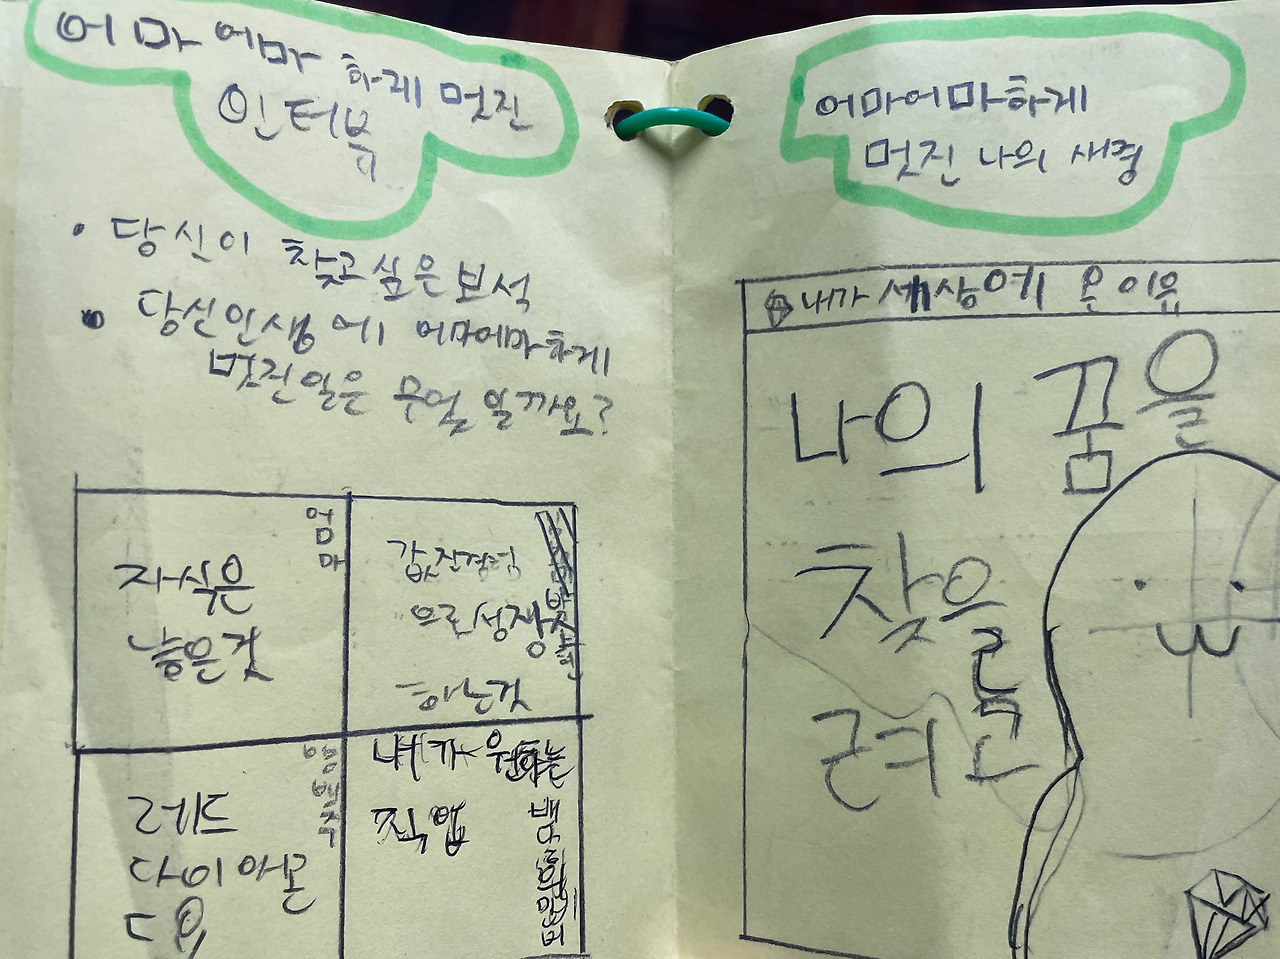 어마어마하게 멋진
인터뷰
• 당신이 찾고싶은보석
• 당신인생에 어마어마하게
멋진일은 무엇일까요?
엄마
자식은
낳은것
값진경험
으로성장
하는것
레드
다이아몬
드요
내가 원하는
직업
어마어마하게
멋진 나의 새경
내가 세상에 온 이유
나의 꿈을
찾을
려고